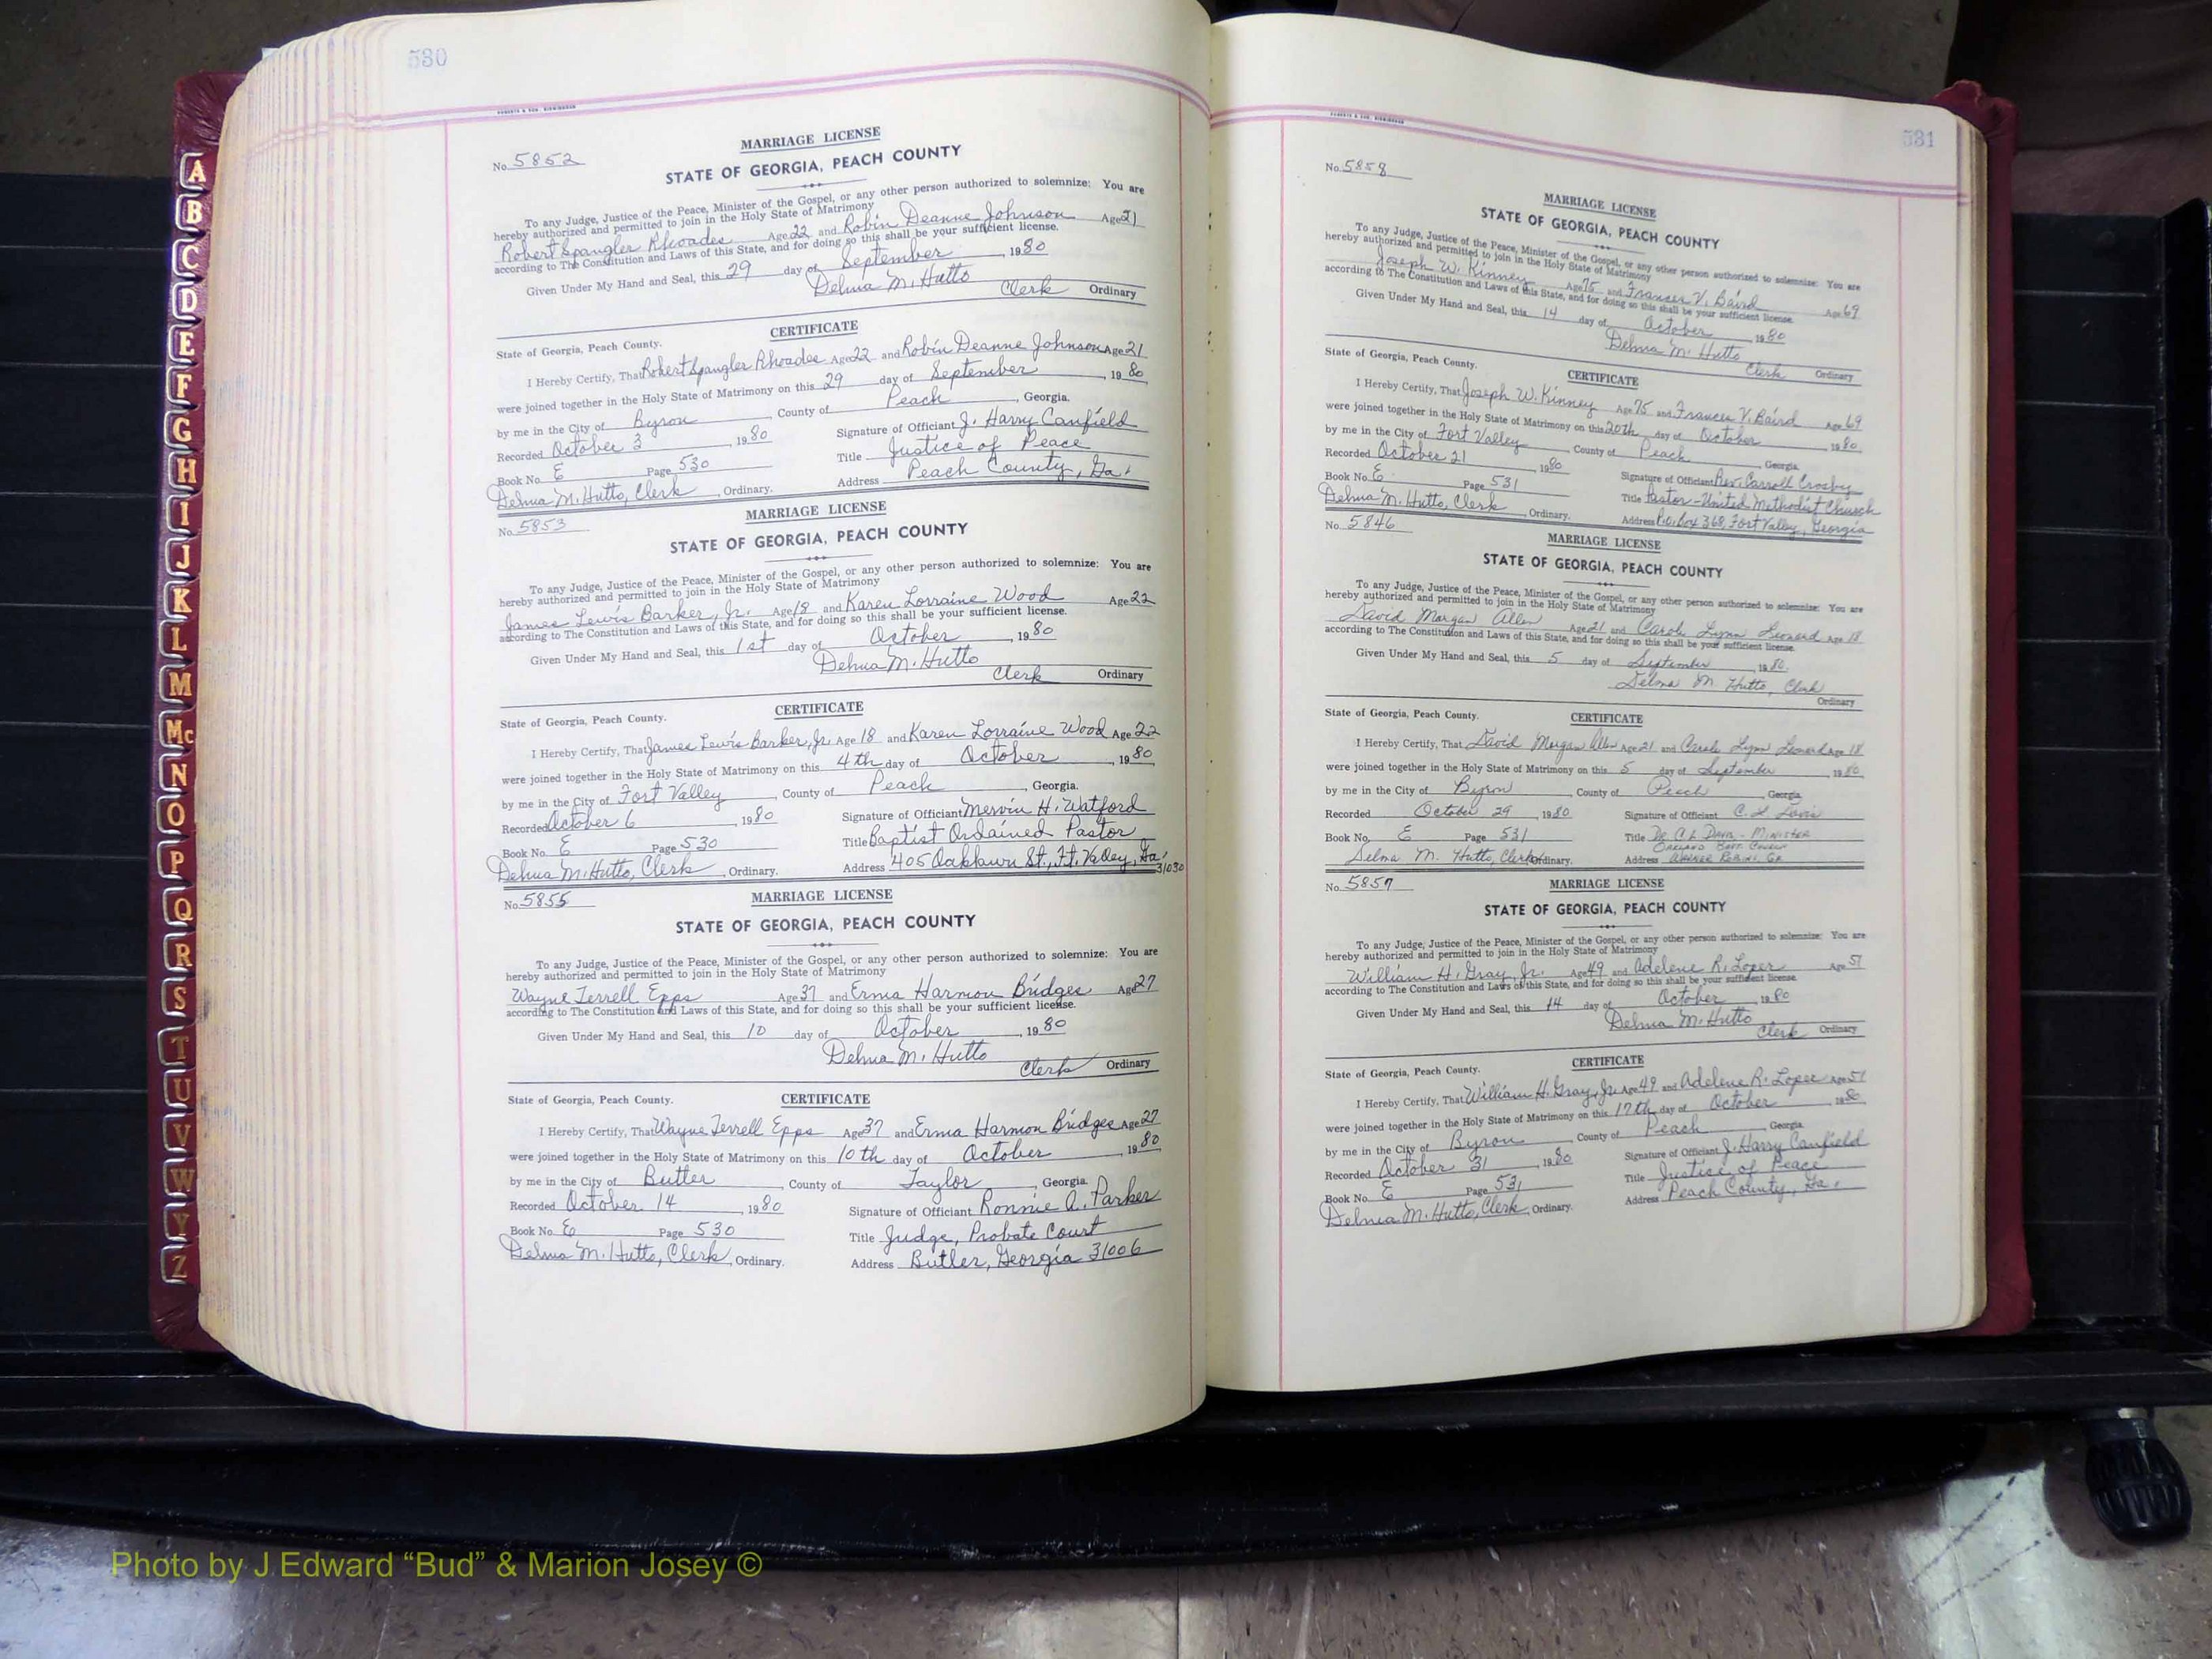 530
MARRIAGE LICENSE
No. 5852
STATE OF GEORGIA, PEACH COUNTY
To any Judge, Justice of the Peace, Minister of the Gospel, or any other person authorized to solemnize: You are
hereby authorized and permitted to join in the Holy State of Matrimony
Robert Spangler Rhoades Age 22 and Robin Deanne Johnson Age 21
according to The Constitution and Laws of this State, and for doing so this shall be your sufficient license.
Given Under My Hand and Seal, this 29 day of September, 1980
Delma M. Hutto
Clerk Ordinary
CERTIFICATE
State of Georgia, Peach County.
I Hereby Certify, That Robert Spangler Rhoades Age 22 and Robin Deanne Johnson Age 21
were joined together in the Holy State of Matrimony on this 29 day of September, 1980
by me in the City of Byron, County of Peach, Georgia.
Recorded October 3, 1980 Signature of Officiant J. Harry Canfield
Book No. E Page 530 Title Justice of Peace
Delma M. Hutto, Clerk, Ordinary. Address Peach County, Ga.
MARRIAGE LICENSE
No. 5853
STATE OF GEORGIA, PEACH COUNTY
To any Judge, Justice of the Peace, Minister of the Gospel, or any other person authorized to solemnize: You are
hereby authorized and permitted to join in the Holy State of Matrimony
James Lewis Barker, Jr. Age 18 and Karen Lorraine Wood Age 22
according to The Constitution and Laws of this State, and for doing so this shall be your sufficient license.
Given Under My Hand and Seal, this 1st day of October, 1980
Delma M. Hutto
Clerk Ordinary
CERTIFICATE
State of Georgia, Peach County.
I Hereby Certify, That James Lewis Barker, Jr. Age 18 and Karen Lorraine Wood Age 22
were joined together in the Holy State of Matrimony on this 4th day of October, 1980
by me in the City of Fort Valley, County of Peach, Georgia.
Recorded October 6, 1980 Signature of Officiant Mervin H. Watford
Book No. E Page 530 Title Baptist Ordained Pastor
Delma M. Hutto, Clerk, Ordinary. Address 405 Oaklawn St., Ft. Valley, Ga. 31030
MARRIAGE LICENSE
No. 5855
STATE OF GEORGIA, PEACH COUNTY
To any Judge, Justice of the Peace, Minister of the Gospel, or any other person authorized to solemnize: You are
hereby authorized and permitted to join in the Holy State of Matrimony
Wayne Terrell Epps Age 37 and Erma Harmon Bridges Age 27
according to The Constitution and Laws of this State, and for doing so this shall be your sufficient license.
Given Under My Hand and Seal, this 10 day of October, 1980
Delma M. Hutto
Clerk Ordinary
CERTIFICATE
State of Georgia, Peach County.
I Hereby Certify, That Wayne Terrell Epps Age 37 and Erma Harmon Bridges Age 27
were joined together in the Holy State of Matrimony on this 10th day of October, 1980
by me in the City of Butler, County of Taylor, Georgia
Recorded October 14, 1980 Signature of Officiant Ronnie A. Parker
Book No. E Page 530 Title Judge, Probate Court
Delma M. Hutto, Clerk, Ordinary. Address Butler, Georgia 31006
531
No. 5858
MARRIAGE LICENSE
STATE OF GEORGIA, PEACH COUNTY
To any Judge, Justice of the Peace, Minister of the Gospel, or any other person authorized to solemnize: You are
hereby authorized and permitted to join in the Holy State of Matrimony
Joseph W. Kinney Age 75 and Frances V. Baird Age 69
according to The Constitution and Laws of this State, and for doing so this shall be your sufficient license.
Given Under My Hand and Seal, this 14 day of October 1980
Delma M. Hutto
Clerk Ordinary
State of Georgia, Peach County. CERTIFICATE
I Hereby Certify, That Joseph W. Kinney Age 75 and Frances V. Baird Age 69
were joined together in the Holy State of Matrimony on this 20th day of October 1980
by me in the City of Fort Valley, County of Peach, Georgia.
Recorded October 21, 1980 Signature of Officiant Rev. Carroll Crosby
Book No. E Page 531 Title Pastor - United Methodist Church
Delma M. Hutto, Clerk, Ordinary. Address P.O. Box 368, Fort Valley, Georgia
No. 5846
MARRIAGE LICENSE
STATE OF GEORGIA, PEACH COUNTY
To any Judge, Justice of the Peace, Minister of the Gospel, or any other person authorized to solemnize: You are
hereby authorized and permitted to join in the Holy State of Matrimony
David Morgan Allen Age 21 and Carole Lynn Leonard Age 18
according to The Constitution and Laws of this State, and for doing so this shall be your sufficient license.
Given Under My Hand and Seal, this 5 day of September, 1980.
Delma M. Hutto, Clerk
Ordinary
State of Georgia, Peach County. CERTIFICATE
I Hereby Certify, That David Morgan Allen Age 21 and Carole Lynn Leonard Age 18
were joined together in the Holy State of Matrimony on this 5 day of September, 1980
by me in the City of Byron, County of Peach, Georgia
Recorded October 29, 1980 Signature of Officiant C. L. Davis
Book No. E Page 531 Title Dr. C L Davis - Minister
Oakland Bapt. Church
Delma M. Hutto, Clerk, Ordinary. Address Warner Robins, Ga
No. 5857
MARRIAGE LICENSE
STATE OF GEORGIA, PEACH COUNTY
To any Judge, Justice of the Peace, Minister of the Gospel, or any other person authorized to solemnize: You are
hereby authorized and permitted to join in the Holy State of Matrimony
William H. Gray, Jr. Age 49 and Adelene R. Loper Age 51
according to The Constitution and Laws of this State, and for doing so this shall be your sufficient license.
Given Under My Hand and Seal, this 14 day of October, 1980
Delma M. Hutto
Clerk Ordinary
State of Georgia, Peach County. CERTIFICATE
I Hereby Certify, That William H. Gray, Jr. Age 49 and Adelene R. Loper Age 51
were joined together in the Holy State of Matrimony on this 17th day of October 1980
by me in the City of Byron, County of Peach, Georgia
Recorded October 31, 1980 Signature of Officiant J. Harry Canfield
Book No. E Page 531 Title Justice of Peace
Delma M. Hutto, Clerk, Ordinary. Address Peach County, Ga.
A
B
C
D
E
F
G
H
I
J
K
L
M
Mc
N
O
P
Q
R
S
T
U
V
W
Y
Z
Photo by J Edward “Bud” & Marion Josey ©